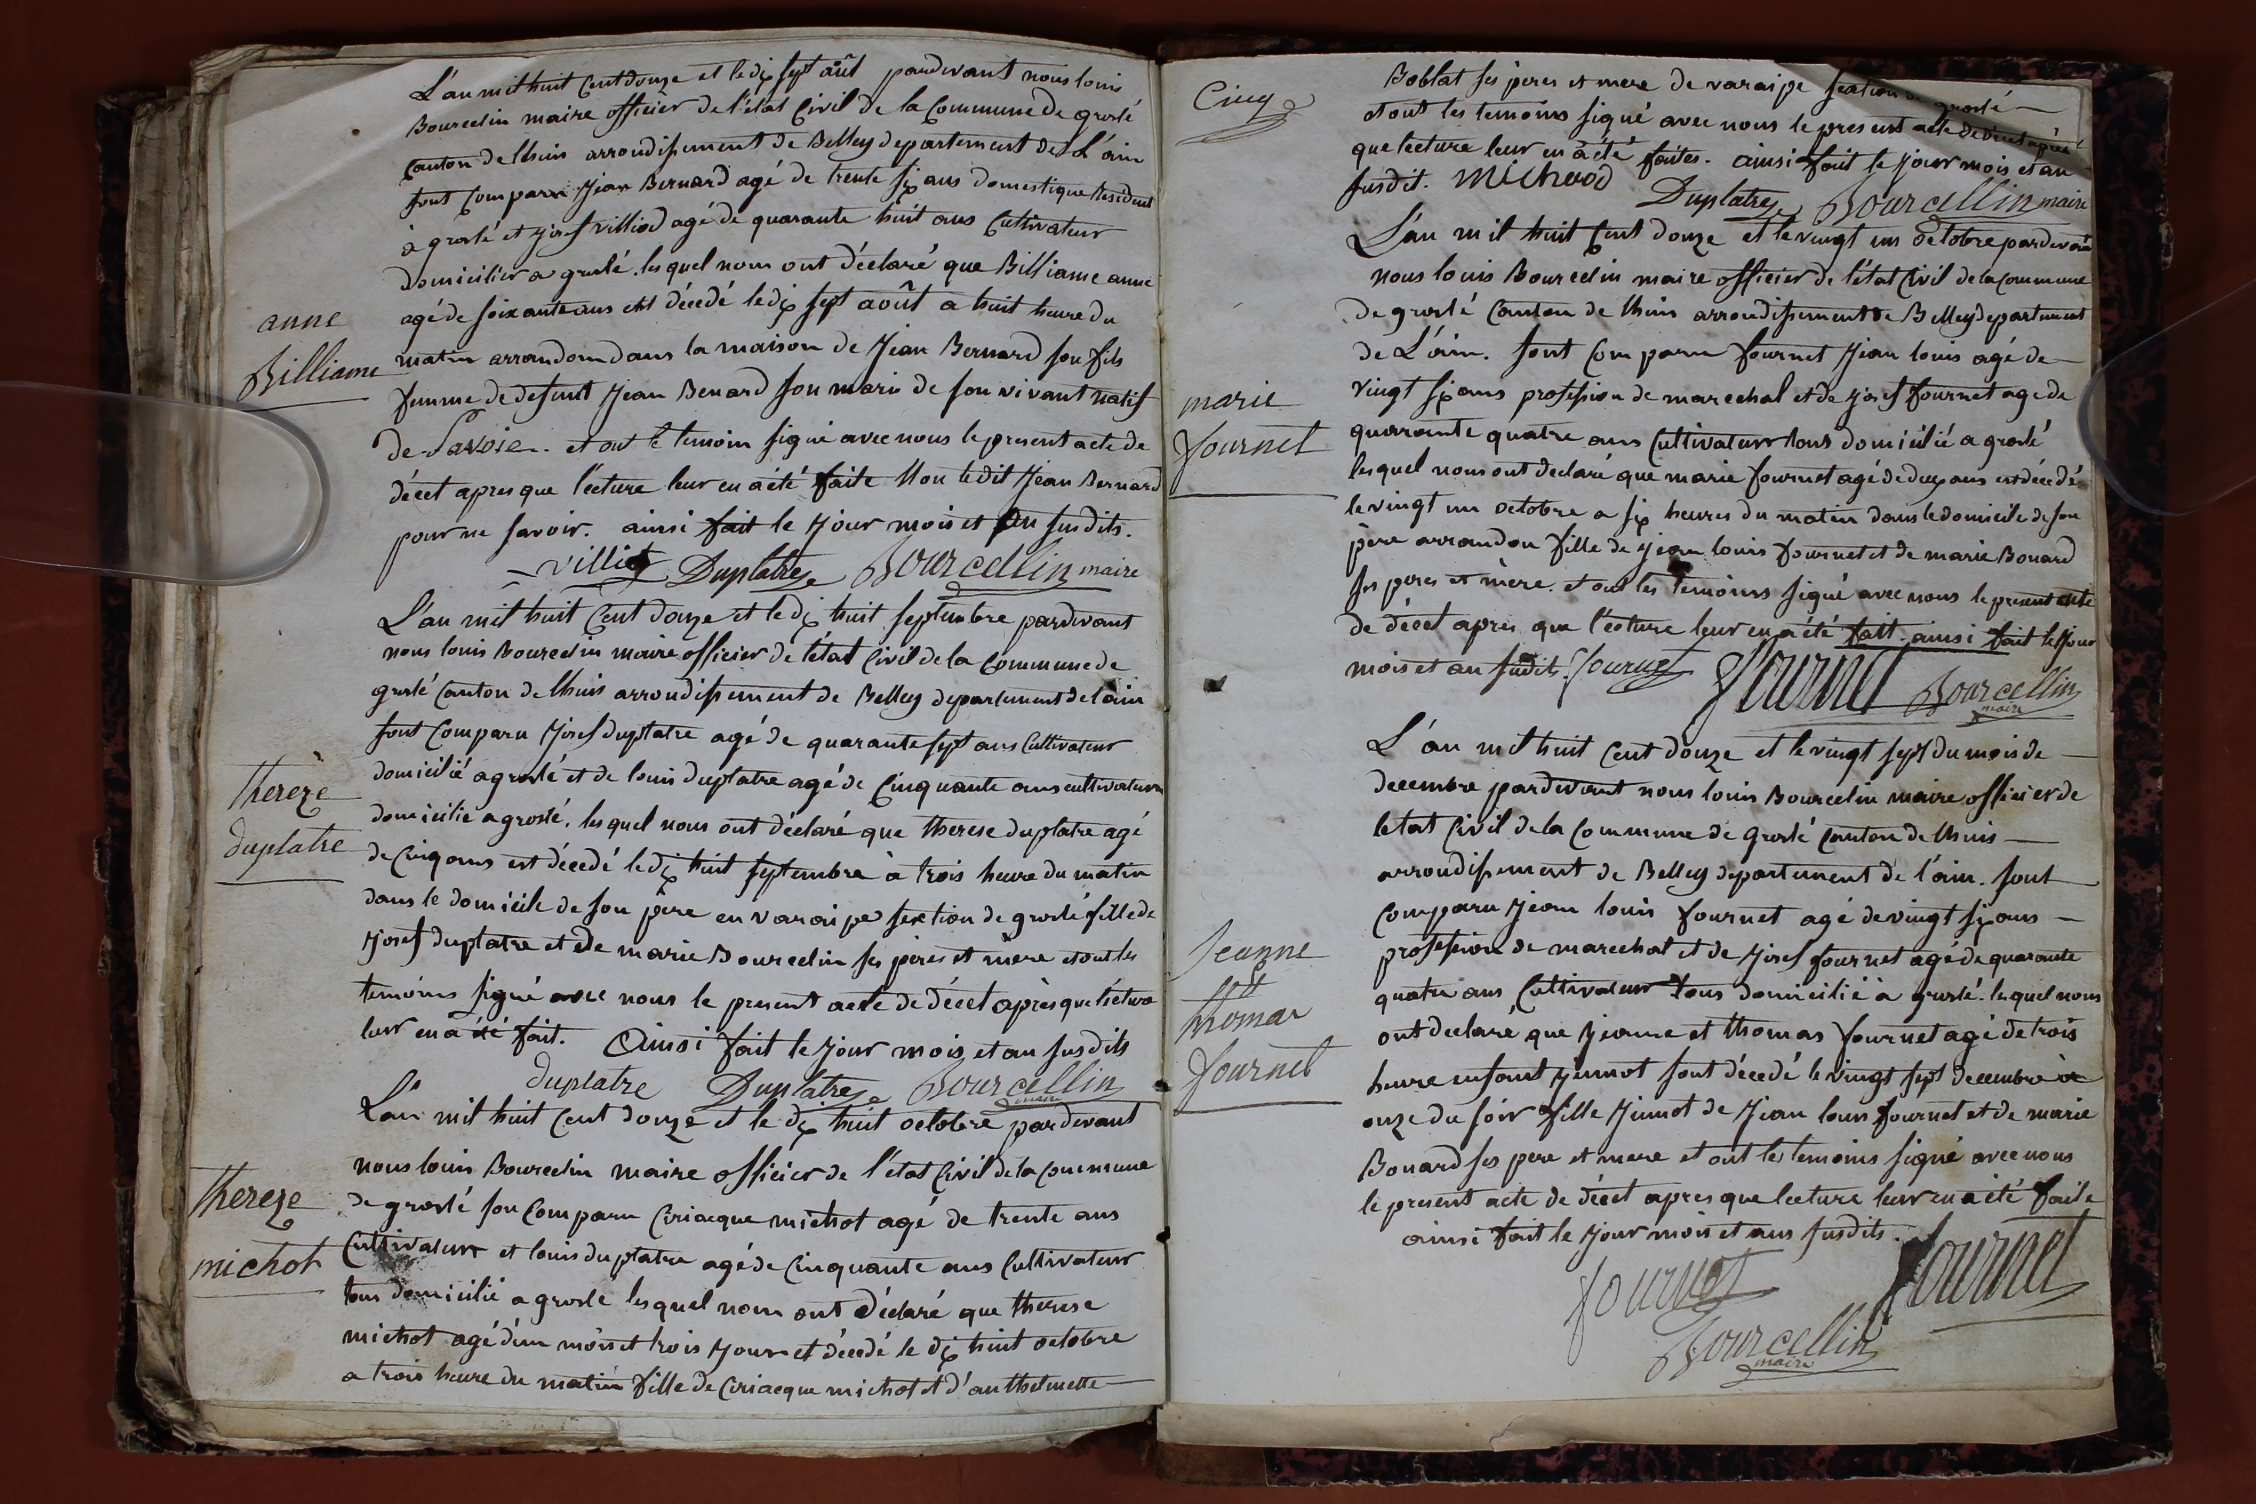 L'an mil huit Cent douze et le dix sept aût pardevant nous louis
Bourcelin maire officier de l'état Civil de la Commune de groslé
Canton de lhuis arrondissement de Belley departement de L'ain
sont Comparu Jean Bernard agé de trente six ans domestique Résident
à groslé et josef villiod agé de quarante huit ans Cultivateur
domicilier a groslé. lesquel nous ont déclaré que Billiame anne
agé de soixante ans est décedé le dix sept août a huit heure du
anne
Billiame
matin arrandon dans la maison de Jean Bernard son fils
femme de defunt Jean Benard son marie de son vivant natif
de Savoie. et ont le temoin signé avec nous le present acte de
décet apres que l'ecture leur en a été faite Non ledit Jean Bernard
pour ne savoir. ainsi fait le Jour mois et an susdits.
villiot Duplatre Bourcellin maire
L'an mil huit Cent douze et le dix huit septembre pardevant
nous louis Bourcelin maire officier de l'état Civil de la Commune de
groslé Canton de lhuis arrondissement de Belley departement de l'ain
sont Comparu Josef duplatre agé de quarante sept ans Cultivateur
domicilié a groslé et de louis duplatre agé de Cinquante ans cultivateur
therèze
duplatre
domicilié a groslé. lesquel nous ont déclaré que therese duplatre agé
de Cinq ans est décedé le dix huit septembre à trois heure du matin
dans le domicile de son père en varaipe section de groslé fille de
Josef duplatre et de marie Bourcelin ses pères et mère et ont les
temoins signé avec nous le present acte de décet après que lecture
leur en a été fait. Ainsi fait le jour mois et an susdits
duplatre Duplatre Bourcellin
maire
L'an mil huit Cent douze et le dix huit octobre pardevant
nous louis Bourcelin maire officier de l'état Civil de la Commune
thereze
michot
de groslé son Comparu Ciriacque michot agé de trente ans
Cultivateur et louis duplatre agé de Cinquante ans Cultivateur
tous domicilié a groslé lesquel nous ont déclaré que therese
michot agé d'un mois et trois Jours et décedé le dix huit octobre
a trois heure du matin fille de Ciriacque michot et d'anthelmette
Cinq
Boblat ses peres et mere de varaipe section de groslé
et ont les temoins signé avec nous le present acte de décet après
que lecture leur en à été faites. ainsi fait le Jour mois et an
susdit. michood Duplatre Bourcellin maire
L'an mil huit Cent douze et le vingt un Octobre pardevant
nous louis Bourcelin maire officier de l'état Civil de la Commune
de groslé Canton de lhuis arrondissement de Belley departement
de L'ain. sont Comparu fournet Jean louis agé de
marie
fournet
vingt six ans profession de marechal et de josef fournet agé de
quarante quatre ans Cultivateur tous domicilié a groslé
lesquel nous ont declaré que marie fournet agé de deux ans est décedé
le vingt un octobre a six heures du matin dans le domicile de son
père arrandon fille de jean louis fournet et de marie Bonard
ses peres et mère. et ont les temoins signé avec nous le present acte
de décet apres que l'ecture leur en a été fait. ainsi fait le Jour
mois et an susdits. fournet fournet Bourcellin
maire
L'an mil huit Cent douze et le vingt sept du mois de
decembre pardevant nous louis Bourcelin maire officier de
letat Civil de la Commune de groslé Canton de lhuis
arrondissement de Belley departement de l'ain. sont
Comparu Jean louis fournet agé de vingt six ans
profession de marechal et de Josef fournet agé de quarante
quatre ans Cultivateur tous domicilié à groslé. lesquel nous
Jeanne
et
thomas
fournet
ont declaré que Jeanne et thomas fournet agé de trois
heure enfant jumot sont décedé le vingt sept decembre à
onze du soir fille Jumot de Jean louis fournet et de marie
Bonard ses pere et mere et ont les temoins signé avec nous
le present acte de décet apres que lecture leur en a été faite
ainsi fait le Jour mois et ans susdits.
fournet fournet
Bourcellin
maire